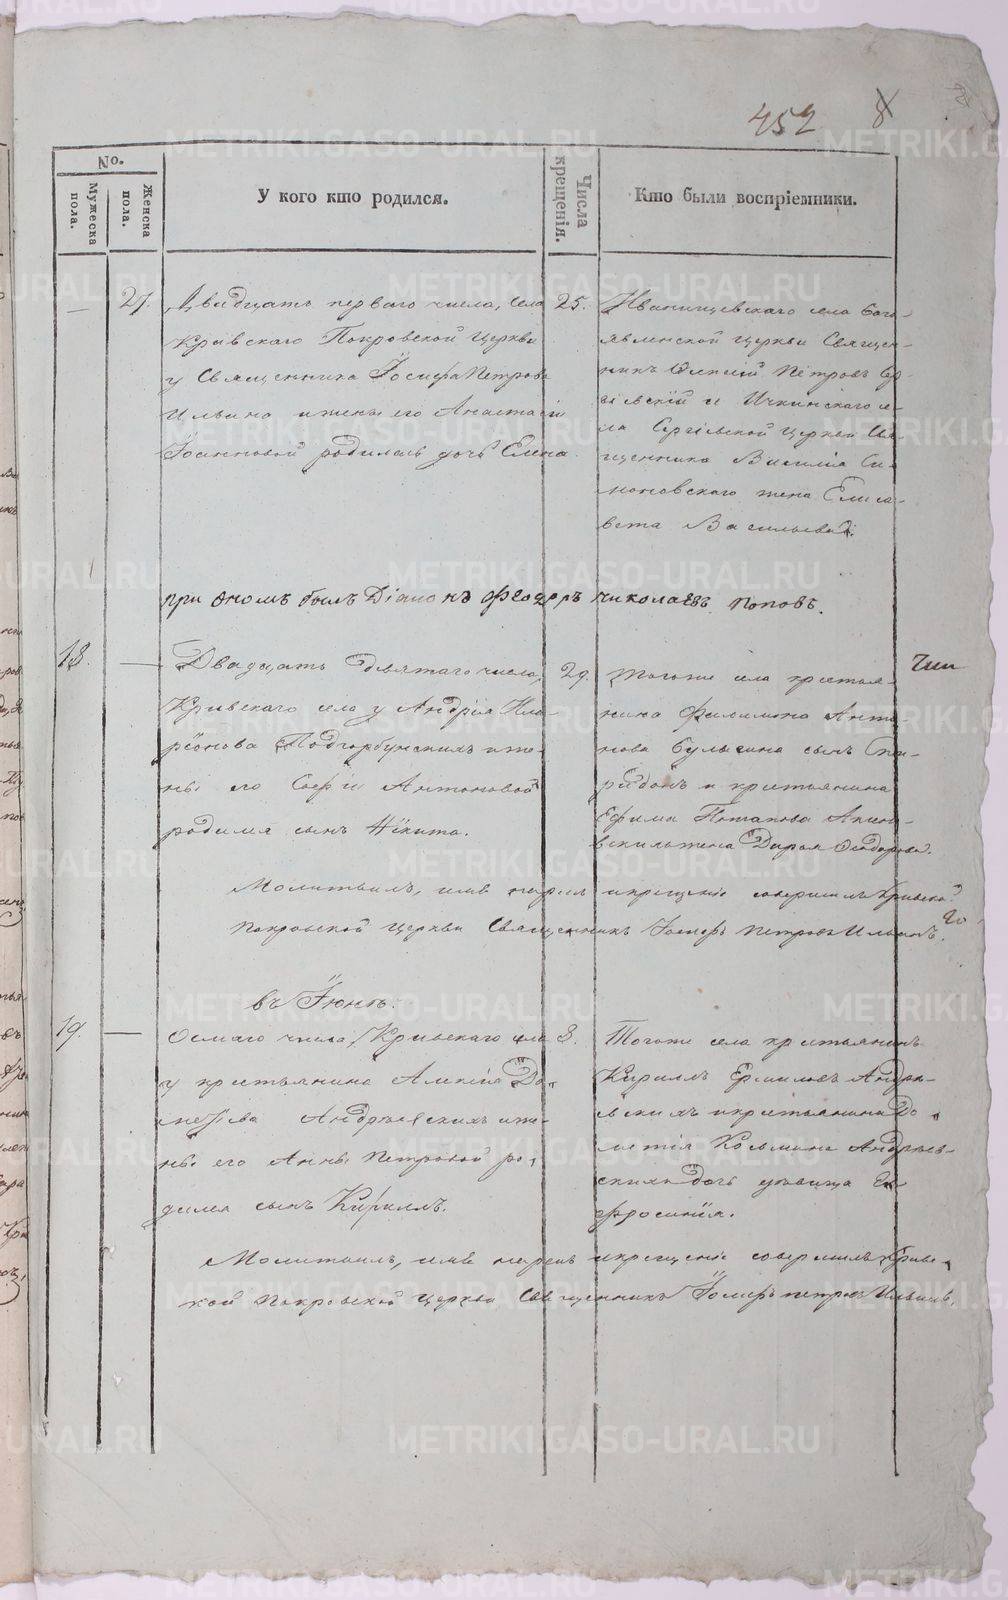 452 8
No.
Мужеска пола.
Женска пола.
У кого кто родился.
Числа крещенія.
Кто были воспріемники.
— 27. Двадцать перваго числа, села
Кривскаго Покровской Церкви
у Священника Іосифа Петрова
Ильина и жены его Анастасіи
Іоанновой родилась дочь Елена
25.
Иванищевскаго села Бого-
явленской церкви Священ-
никъ Алексій Петровъ
и Ичкинскаго се-
ла Сергіевской церкви Свя-
щенника Василія Си-
моновскаго жена Елиса-
вета Васильева.
при ономъ былъ Діаконъ Феодоръ Николаевъ Поповъ.
18. — Двадцать девятаго числа,
Кривскаго села у Андрея Ила-
ріонова Подгорбунскихъ и же-
ны его Софіи Антоновой
родился сынъ Никита.
29.
Тогоже села крестья-
нина Филимона Анто-
нова Булыгина сынъ Спи-
ридонъ и крестьянина
Ефима Потапова
жена Дарья Феодорова.
Молитвилъ, имя нарекъ и крещеніе совершилъ Кривска-
го
Покровской церкви Священникъ Іосифъ Петровъ Ильинъ.
въ Іюнѣ.
19. — Осмаго числа, Кривскаго села
у крестьянина Алексія До-
метіева Андреевскихъ и же-
ны его Анны Петровой ро-
дился сынъ Кириллъ.
8.
Тогоже села крестьянинъ
Кириллъ Ермиловъ Андре-
евскихъ и крестьянина До-
метія Козьмина Андреев-
скихъ дочь дѣвица Ев-
фросинія.
Молитвилъ, имя нарекъ и крещеніе совершилъ Кривс-
кой Покровской церкви Священникъ Іосифъ Петровъ Ильинъ.
METRIKI.GASO-URAL.RU